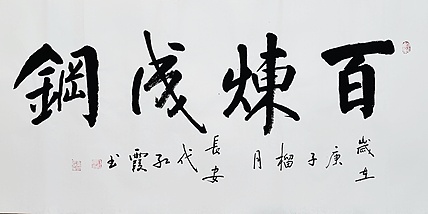 百煉成鋼
歲在庚子榴月
長安代紅霞書